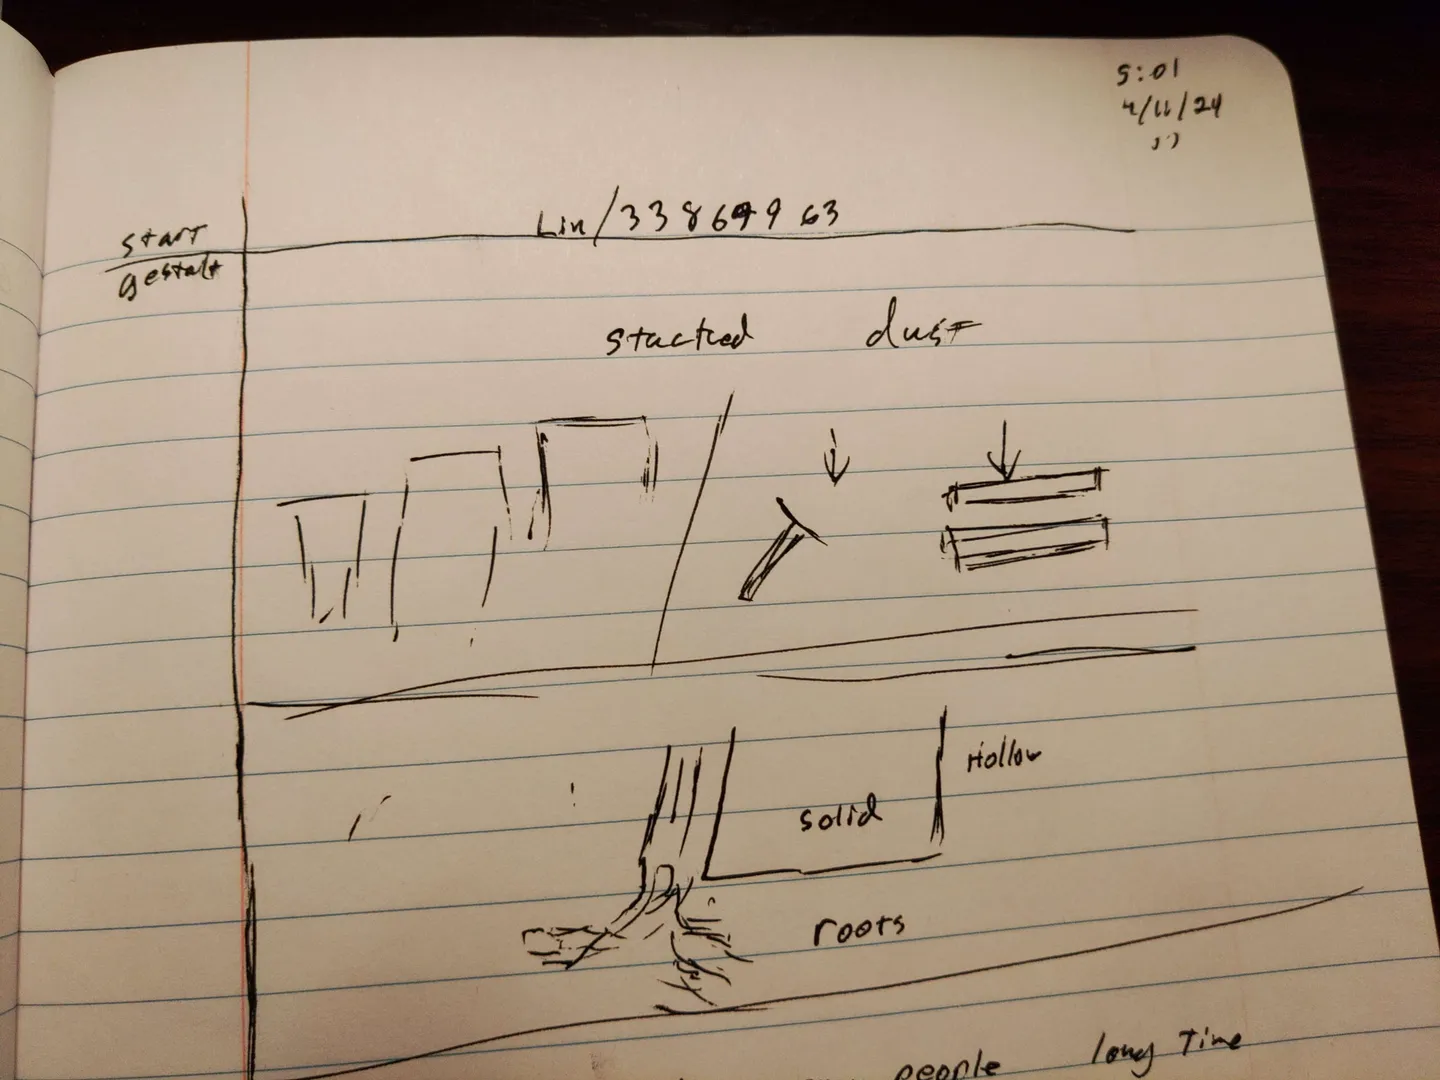 5:01
4/11/24
Lin/33869963
start
gestalt
stacked dust
Hollow
solid
roots
people long Time